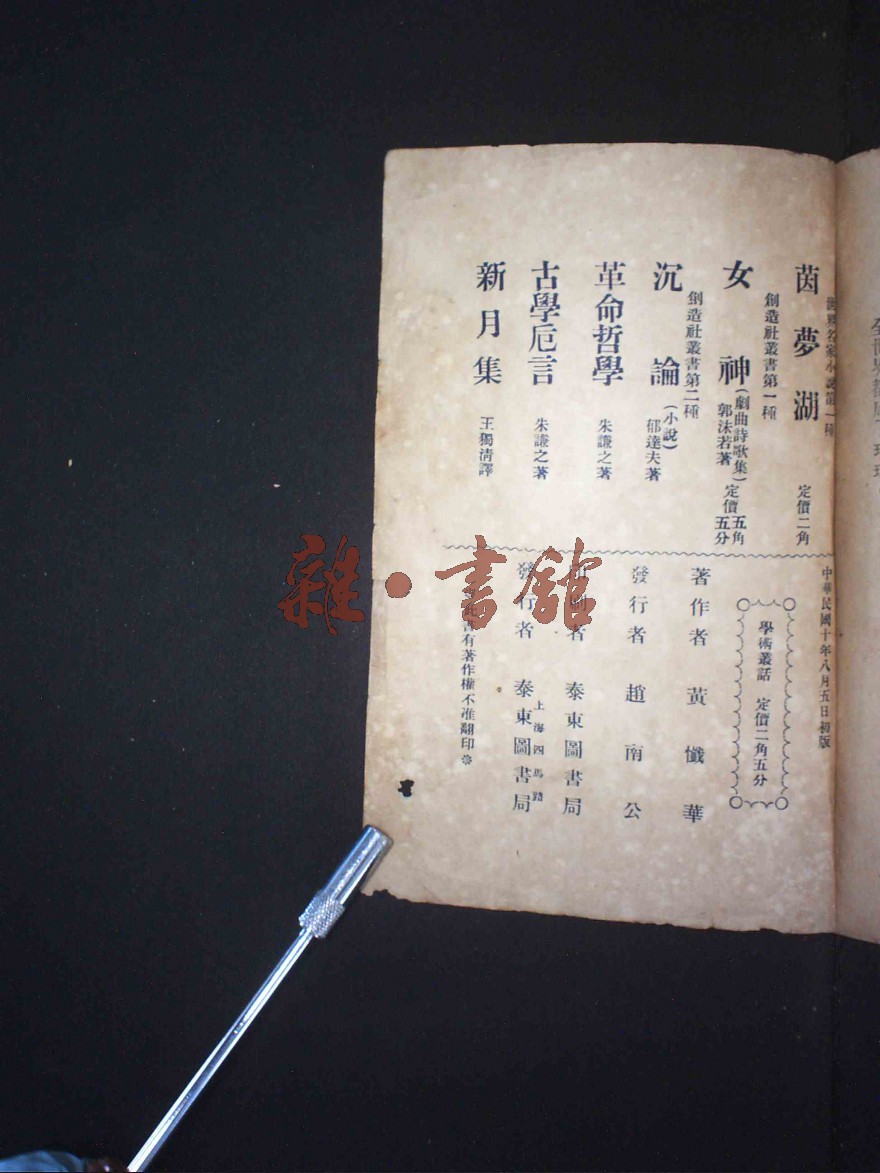 世界名家小說第一種
茵夢湖 定價二角
創造社叢書第一種
女神(劇曲詩歌集)定價五角五分
郭沫若著
創造社叢書第二種
沉論(小說)
郁達夫著
革命哲學 朱謙之著
古學卮言 朱謙之著
新月集 王獨清譯
中華民國十年八月五日初版
學術叢話 定價二角五分
著作者 黃懺華
發行者 趙南公
印刷者 泰東圖書局
上海四馬路
發行者 泰東圖書局
此書有著作權不准翻印※
雜·書館